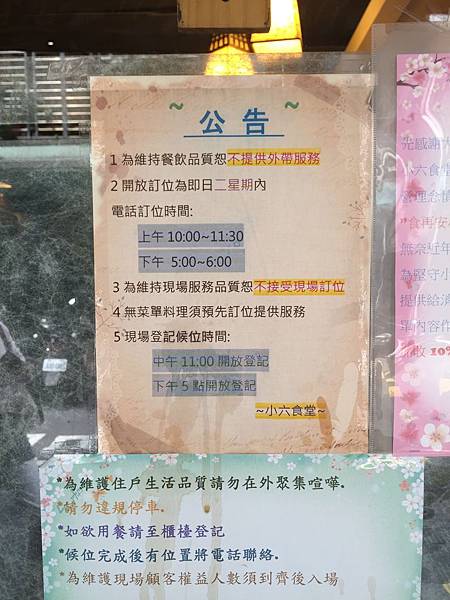 ~ 公告 ~
1 為維持餐飲品質恕不提供外帶服務
2 開放訂位為即日二星期內
電話訂位時間:
上午 10:00~11:30
下午 5:00~6:00
3 為維持現場服務品質恕不接受現場訂位
4 無菜單料理須預先訂位提供服務
5 現場登記候位時間:
中午 11:00 開放登記
下午 5 點開放登記
~小六食堂~
*為維護住戶生活品質請勿在外聚集喧嘩.
*請勿違規停車.
*如欲用餐請至櫃檯登記
*候位完成後有位置將電話聯絡.
*為維護現場顧客權益人數須到齊後入場
小六食堂
無奈近年
為堅守小
提供給消
單內容作